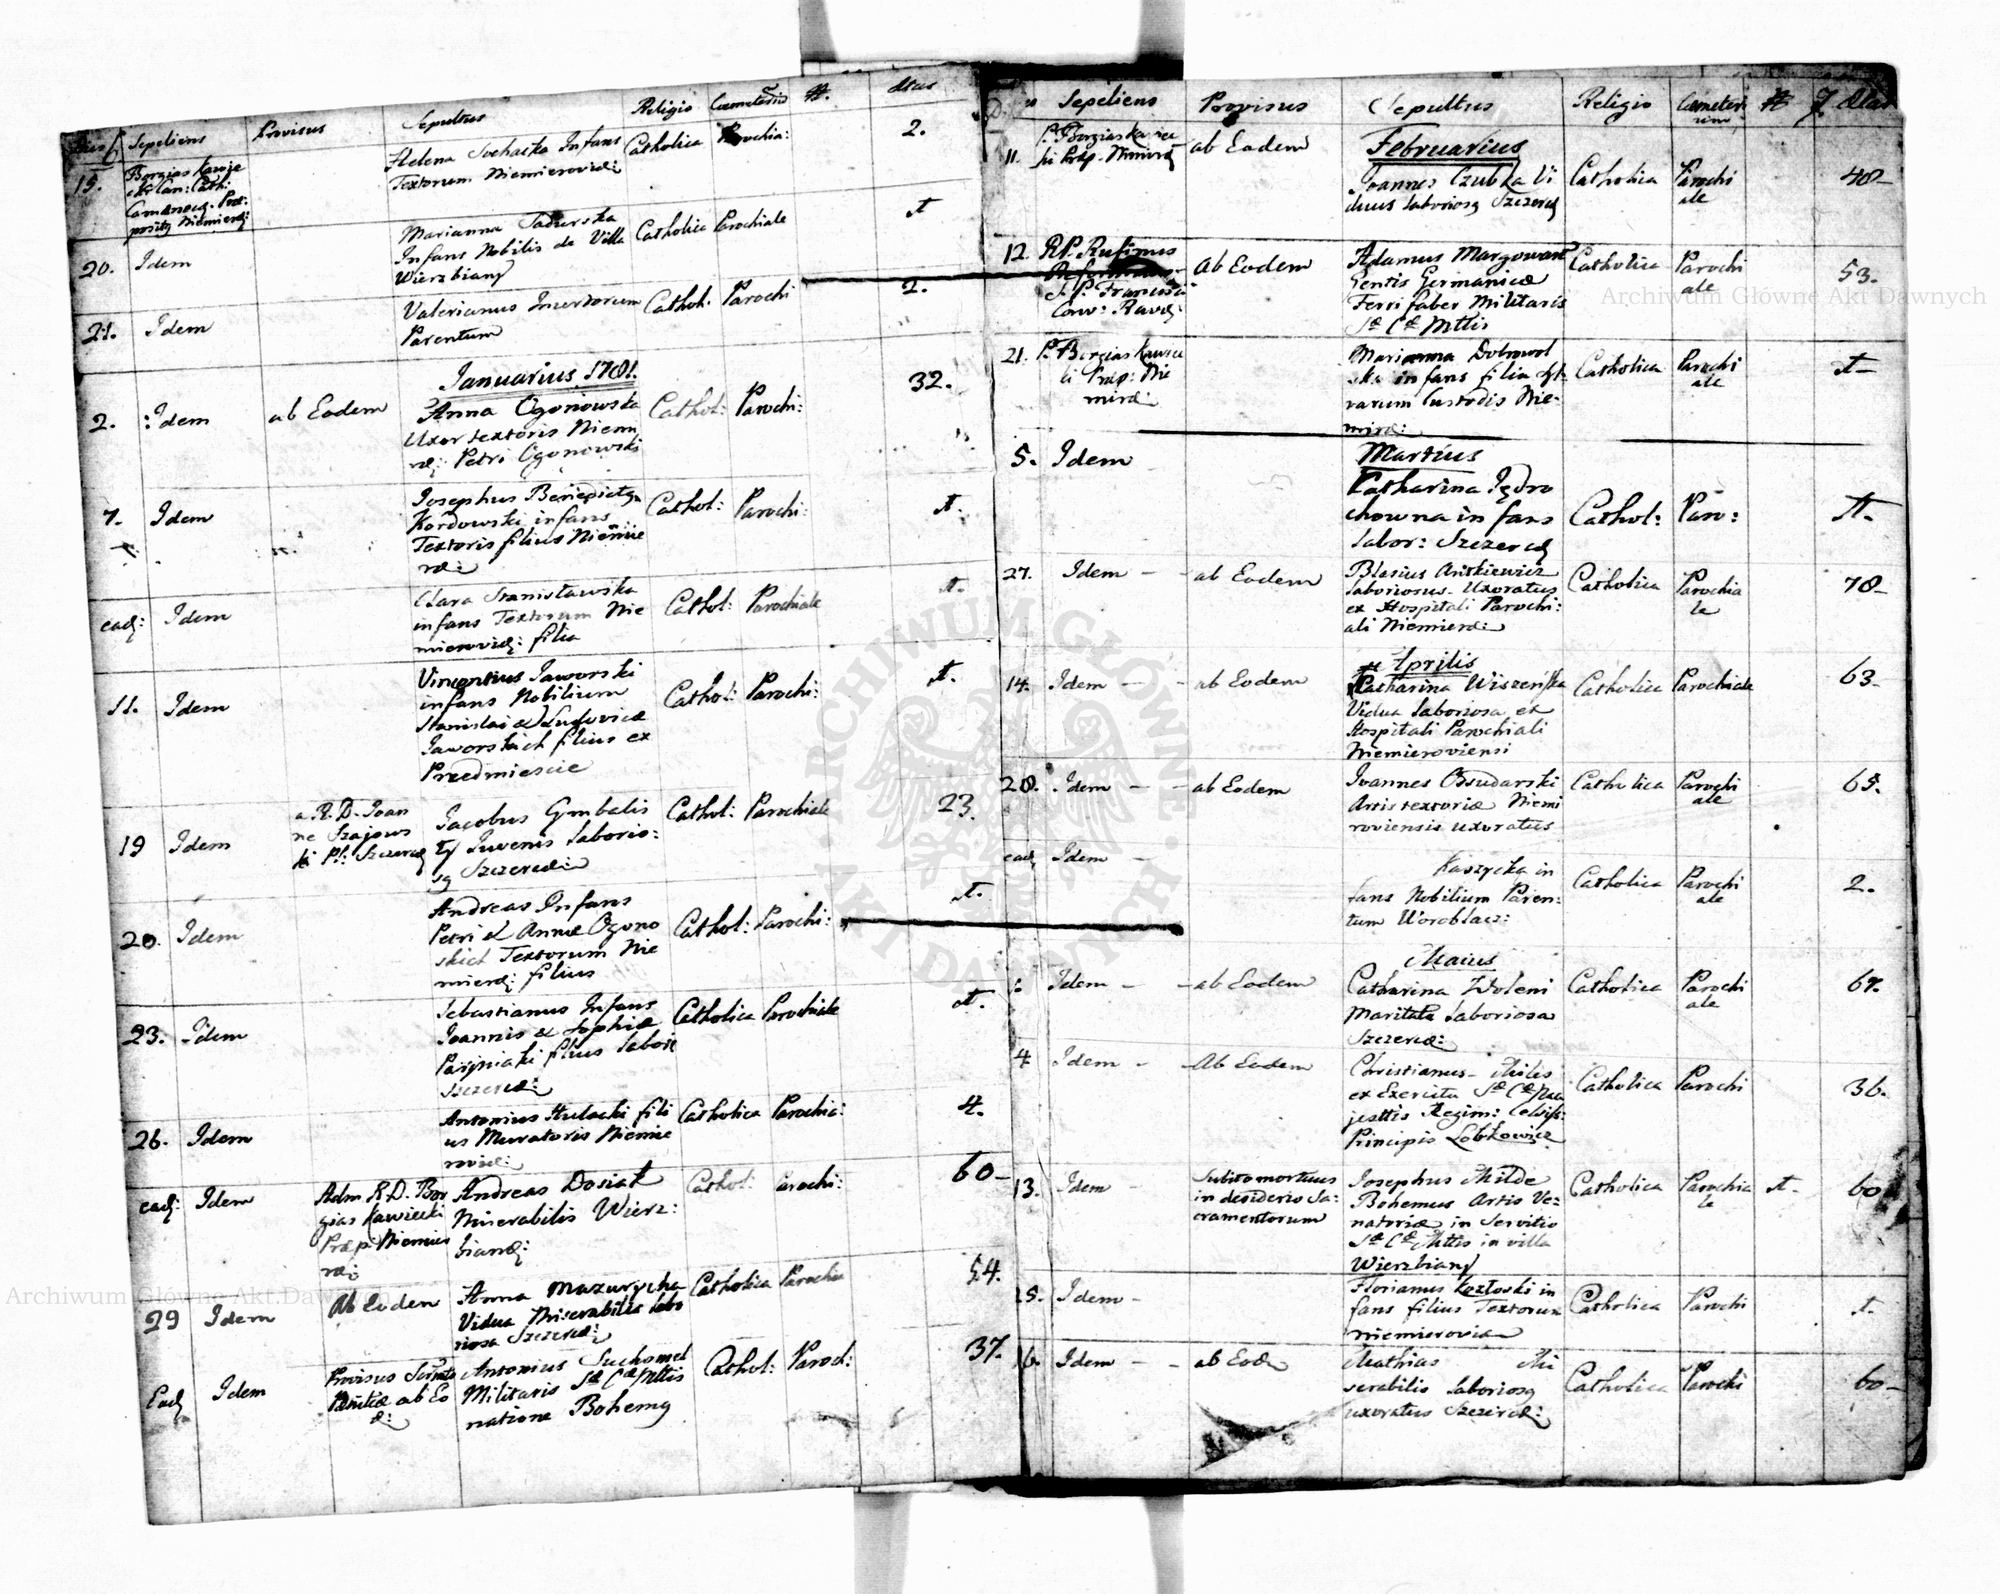 Dies Sepeliens Provisus Sepultus Religio Cœmeteriū #. Ætas
15. Borgias Kawie
cki Can: Cath:
Camenecę. Præ:
positę Niemierę:
Helena Sochacka Infans
Textorum Niemierovię:
Catholica Parochia: 2.
20. Idem
Marianna Tadurska
Infans Nobilis de Villa
Wierzbiany
Catholica Parochiale
21. Idem
Valerianus Incertorum
Parentum
Cathol: Parochi 2.
Januarius 1781.
2. Idem ab Eodem
Anna Ogonowska
Uxor textoris Niemi
ræ: Petri Ogonowski
Cathol: Parochi: 32.
7. Idem
Josephus Benedictę
Kordowski infans
Textoris filius Niemie
ræ:
Cathol: Parochi:
eadę: Idem
Clara Stanisławska
infans Textorum Nie
mierovię: filia
Cathol: Parochiale
11. Idem
Vincentius Jaworski
infans Nobilium
Stanislai & Ludovicæ
Jaworskich filius ex
Przedmiescie
Cathol: Parochi:
19 Idem
a R. D. Joan
ne Szajows
ki Pl: Szczercę
Jacobus Gymbalis
ty Juvenis laborio:
sę Szczercæ:
Cathol: Parochiale 23.
20. Idem
Andreas Infans
Petri & Annæ Ogono
skich Textorum Nie
mierę: filius
Cathol: Parochi:
23. Idem
Sebastianus Infans
Joannis & Sophiæ
filius labori
Szczercæ:
Catholica Parochiale
26. Idem
Antonius Hulacki fili
us Muratoris Niemie
rovię:
Catholica Parochia: 4.
eadę: Idem
Adm R. D. Bor
gias Kawiecki
Præp: Niemie
ræ:
Andreas Dosiak
Miserabilis Wierz:
bianę:
Cathol: Parochi: 60-
29 Idem Ab Eodem
Anna Mazurycha
Vidua Miserabilis labo
riosa Szczercę:
Catholica Parochia 54.
Eadę Idem
Provisus
ab Eo
d:
Antonius Suchomel
Militaris Sæ Cæ Mttis
natione Bohemę
Cathol: Paroch: 37.
Dies Sepeliens Provisus Sepultus Religio Cœmeteri
um # Ætas
Februarius
11. P. Borgias Kawiec
ki Præp. Nimirę
ab Eodem
Joannes Czubka Vi
duus laboriosę Szczercę
Catholica Parochi
ale 48-
12. R. P. Rufinus
Reformatus
S. P. Francisci
Conv: Ravę:
Ab Eodem
Adamus Margowart
Gentis Germanicæ
Ferri faber Militaris
Sæ Cæ Mttis
Catholica Parochi
ale 53.
21. P. Borgias Kawiec
ki Præp: Nie
miræ:
Marianna Dobrowol
ska infans filia Syl
varum Custodis Nie-
miræ:
Catholica Parochi
ale
Martius
5. Idem
Catharina Jędro
chowna infans
labor: Szczercę
Cathol: Paro:
27. Idem - - ab Eodem
Blasius Antkiewicz
laboriosus Uxoratus
ex Hospitali Parochi:
ali Niemieræ:
Catholica Parochia
le 78-
Aprilis
14. Idem - - ab Eodem
Catharina Wiszeńska
Vidua laboriosa ex
Hospitali Parochiali
Niemieroviensi
Catholica Parochiale 63-
28. Idem - - ab Eodem
Joannes Ossudarski
Artis textoriæ Niemi
roviensis uxoratus
Catholica Parochi
ale 65.
eadę Idem -
Kaszycka in
fans Nobilium Paren-
tum Woroblac:
Catholica Parochi
ale 2.
Maius
Idem - - ab Eodem
Catharina Woleni
Maritata laboriosa
Szczercæ:
Catholica Parochi
ale 67.
4 Idem - - Ab Eodem
Christianus - Miles
ex Exercitu Sæ Cæ Ma
jesttis Regim: Celsiss:
Principis Lobkowicz
Catholica Parochi 36.
13. Idem -
Subito mortuus
in desiderio Sa-
cramentorum
Josephus Milde
Bohemus Artis Ve-
natoriæ in Servitio
Sæ Cæ Mttis in villa
Wierzbiany
Catholica Parochia
le 60
15. Idem -
Florianus Kozłoski in
fans filius Textorum
niemierovia
Catholica Parochi
16. Idem - - ab Eodę
Mathias Mi
serabilis laboriosę
uxoratus Szczercæ:
Catholica Parochi 60-
Archiwum Główne Akt Dawnych
Archiwum Główne Akt Dawnych
ARCHIWUM GŁÓWNE AKT DAWNYCH